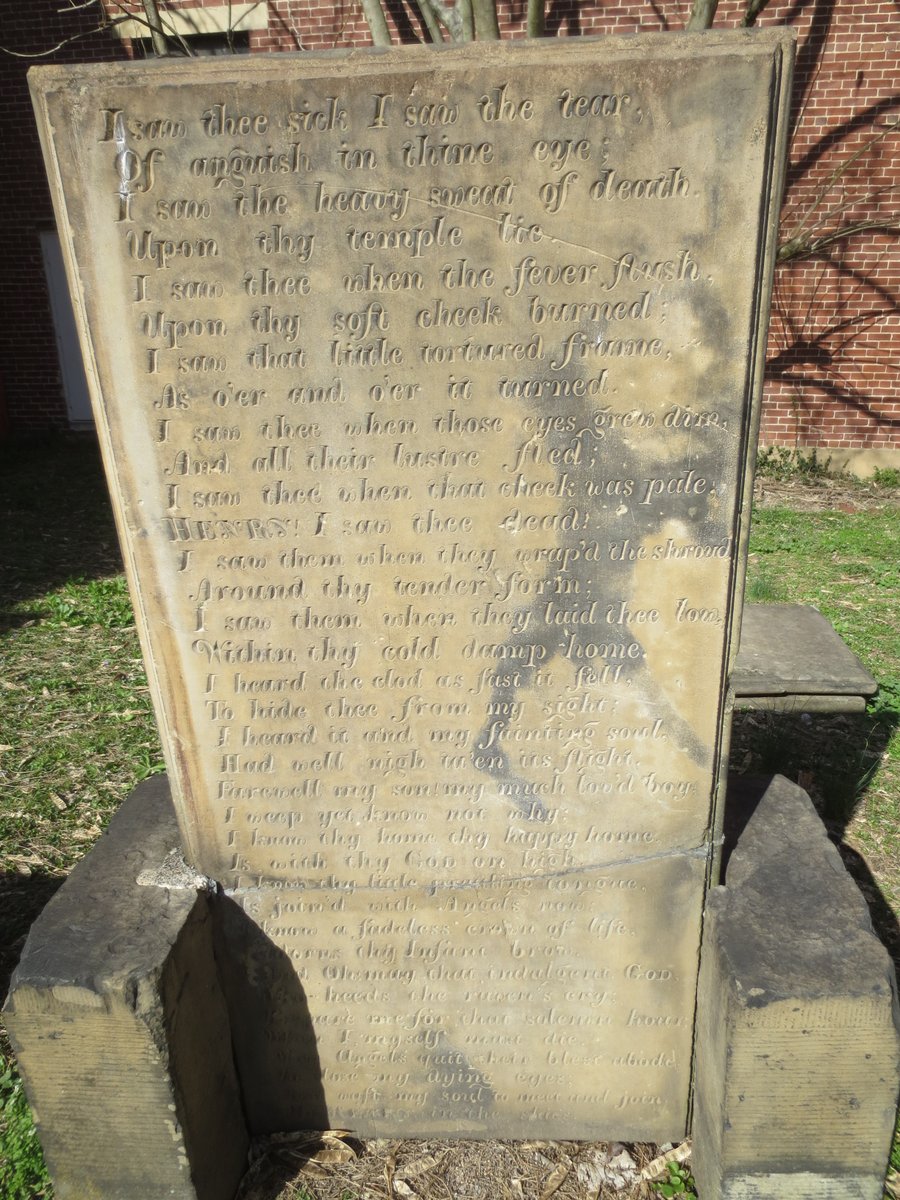 I saw thee sick I saw the tear,
Of anguish in thine eye;
I saw the heavy sweat of death.
Upon thy temple lie.
I saw thee when the fever flush,
Upon thy soft cheek burned;
I saw that little tortured frame,
As o'er and o'er it turned.
I saw thee when those eyes grew dim,
And all their lustre fled;
I saw thee when that cheek was pale,
HENRY! I saw thee dead!
I saw them when they wrap'd the shroud
Around thy tender form;
I saw them when they laid thee low,
Within thy cold damp home.
I heard the clod as fast it fell,
To hide thee from my sight;
I heard it and my fainting soul,
Had well nigh ta'en its flight.
Farewell my son! my much lov'd boy;
I weep yet know not why;
I know thy home thy happy home
Is with thy GOD on high.
I know thy little prattling tongue,
Is join'd with Angels now;
I know a fadeless crown of life,
Adorns thy Infant brow.
And Oh may that indulgent God
heeds the raven's cry;
me for that solemn hour
When I myself must die.
Angels quit their blest abode
close my dying eyes;
waft my soul to meet and join
in the skies.